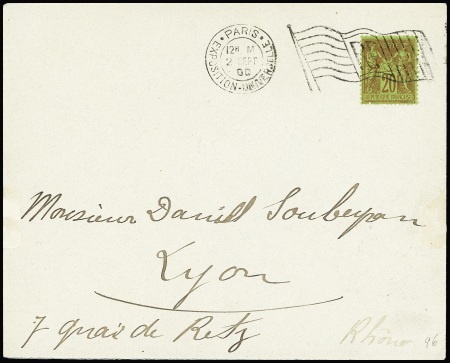 PARIS
EXPOSITION-UNIVERSELLE
12H M
2 SEPT
00
20
Monsieur Daniel Soubeyran
Lyon
7 quai de Retz
Rhône 96